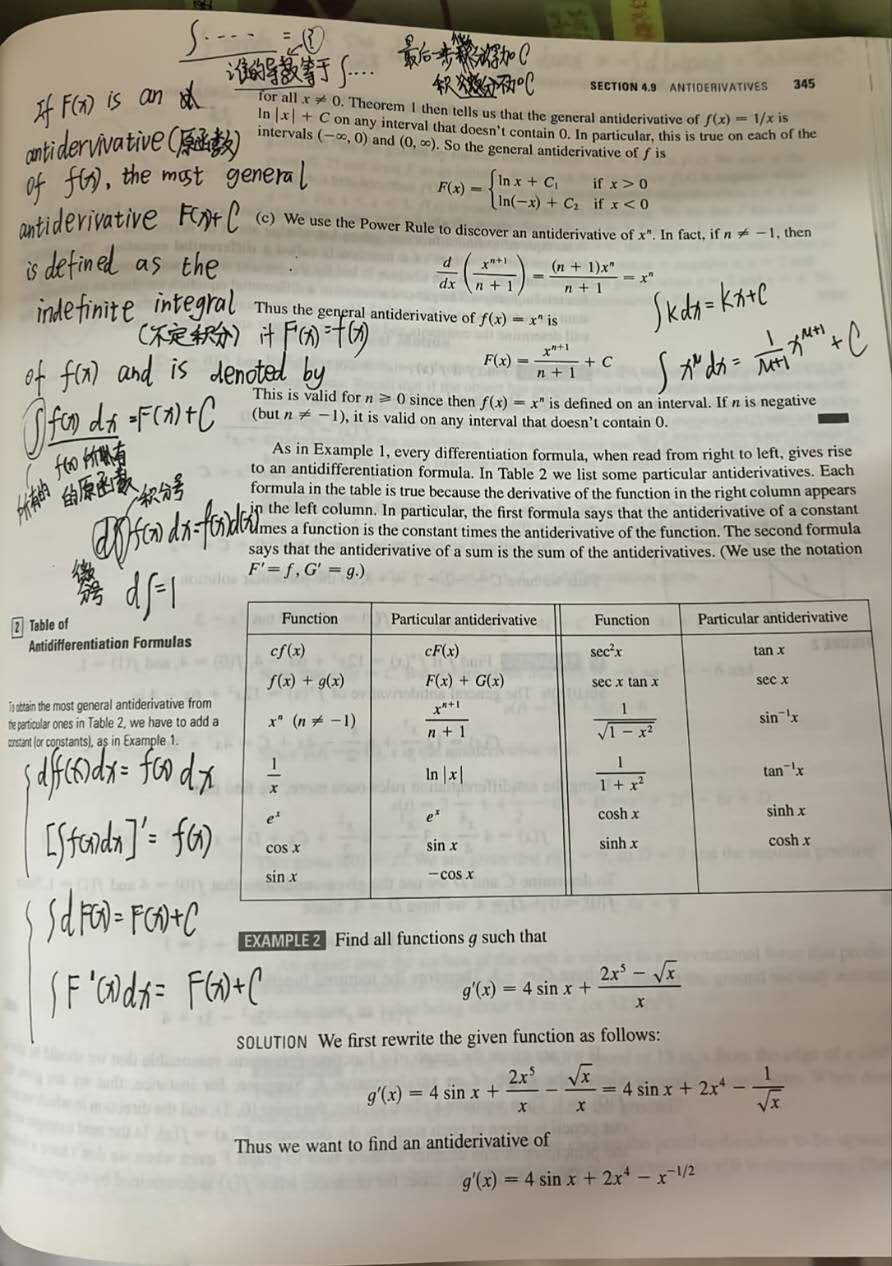 ∫‥‥ = ?
谁的导数等于 ∫‥‥
最后一步 加C
积 C
SECTION 4.9 ANTIDERIVATIVES 345
If F(x) is an
antidervivative(原函数)
of f(x), the most general
antiderivative F(x)+C
is defined as the
indefinite integral
(不定积分) if F'(x)=f(x)
of f(x) and is denoted by
∫f(x) dx=F(x)+C
f(x)的所有
的原函数
所有的
积分号
d∫f(x) dx=f(x)d(x)
微分号
d∫=1
for all x ≠ 0. Theorem 1 then tells us that the general antiderivative of f(x) = 1/x is
ln |x| + C on any interval that doesn't contain 0. In particular, this is true on each of the
intervals (−∞, 0) and (0, ∞). So the general antiderivative of f is
F(x) = { ln x + C₁ if x > 0
ln(−x) + C₂ if x < 0
(c) We use the Power Rule to discover an antiderivative of xⁿ. In fact, if n ≠ −1, then
d/dx (xⁿ⁺¹/(n + 1)) = (n + 1)xⁿ/(n + 1) = xⁿ
Thus the general antiderivative of f(x) = xⁿ is
∫kdx=kx+C
F(x) = xⁿ⁺¹/(n + 1) + C
∫ x^μ dx = 1/(μ+1) x^(μ+1) + C
This is valid for n ≥ 0 since then f(x) = xⁿ is defined on an interval. If n is negative
(but n ≠ −1), it is valid on any interval that doesn't contain 0.
As in Example 1, every differentiation formula, when read from right to left, gives rise
to an antidifferentiation formula. In Table 2 we list some particular antiderivatives. Each
formula in the table is true because the derivative of the function in the right column appears
in the left column. In particular, the first formula says that the antiderivative of a constant
times a function is the constant times the antiderivative of the function. The second formula
says that the antiderivative of a sum is the sum of the antiderivatives. (We use the notation
F′ = f, G′ = g.)
2 Table of
Antidifferentiation Formulas
To obtain the most general antiderivative from
the particular ones in Table 2, we have to add a
constant (or constants), as in Example 1.
Function Particular antiderivative Function Particular antiderivative
cf(x) cF(x) sec²x tan x
f(x) + g(x) F(x) + G(x) sec x tan x sec x
xⁿ (n ≠ −1) xⁿ⁺¹/(n + 1) 1/√(1 − x²) sin⁻¹x
1/x ln |x| 1/(1 + x²) tan⁻¹x
eˣ eˣ cosh x sinh x
cos x sin x sinh x cosh x
sin x −cos x
d∫f(x)dx= f(x) dx
[∫f(x)dx]'= f(x)
∫dF(x)= F(x)+C
∫F'(x)dx= F(x)+C
EXAMPLE 2 Find all functions g such that
g′(x) = 4 sin x + (2x⁵ − √x)/x
SOLUTION We first rewrite the given function as follows:
g′(x) = 4 sin x + 2x⁵/x − √x/x = 4 sin x + 2x⁴ − 1/√x
Thus we want to find an antiderivative of
g′(x) = 4 sin x + 2x⁴ − x^(−1/2)